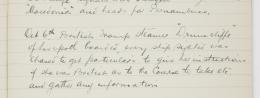 "Macedonia" and head for Pernambuco.
Oct 6th British Tramp Steamer "Drumcliffe"
of Liverpool boarded, every ship sighted was
chased to get particulars to give her instructions
if she was British as to the Course to take etc,
and gather any information